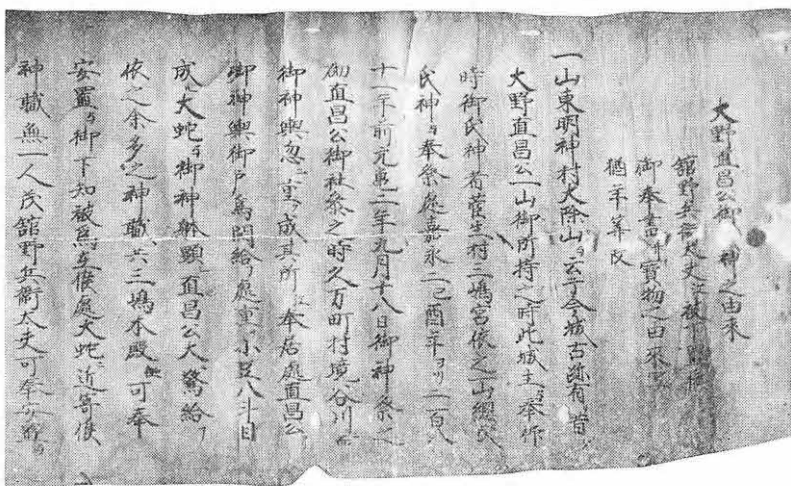 大野直昌公御 神之由来
舘野兵衛太夫江被下置候
御奉書并寳物之由來写
猶年筭改
一山東明神村大除山与云于今城古跡有昔
大野直昌公一山御所持之時此城主奉仰
時御氏神者菅生村三嶋宮依之山總氏
氏神与奉祭處嘉永二己酉年ヨリ二百八
十一年前元亀二年九月十八日御神祭之
砌直昌公御社祭之時久万町村境谷川ニ而
御神輿忽ニ重ク成其所江奉居處直昌公
御神輿御戸為開給フ處重サ小豆八斗目
成ル大蛇ニ而御神躰顕直昌公大ニ驚給フ
依之余多之神職共三嶋本殿 可奉
安置与御下知被為立候處大蛇ニ近寄候
神職無一人茂舘野兵衛太夫可奉安置与